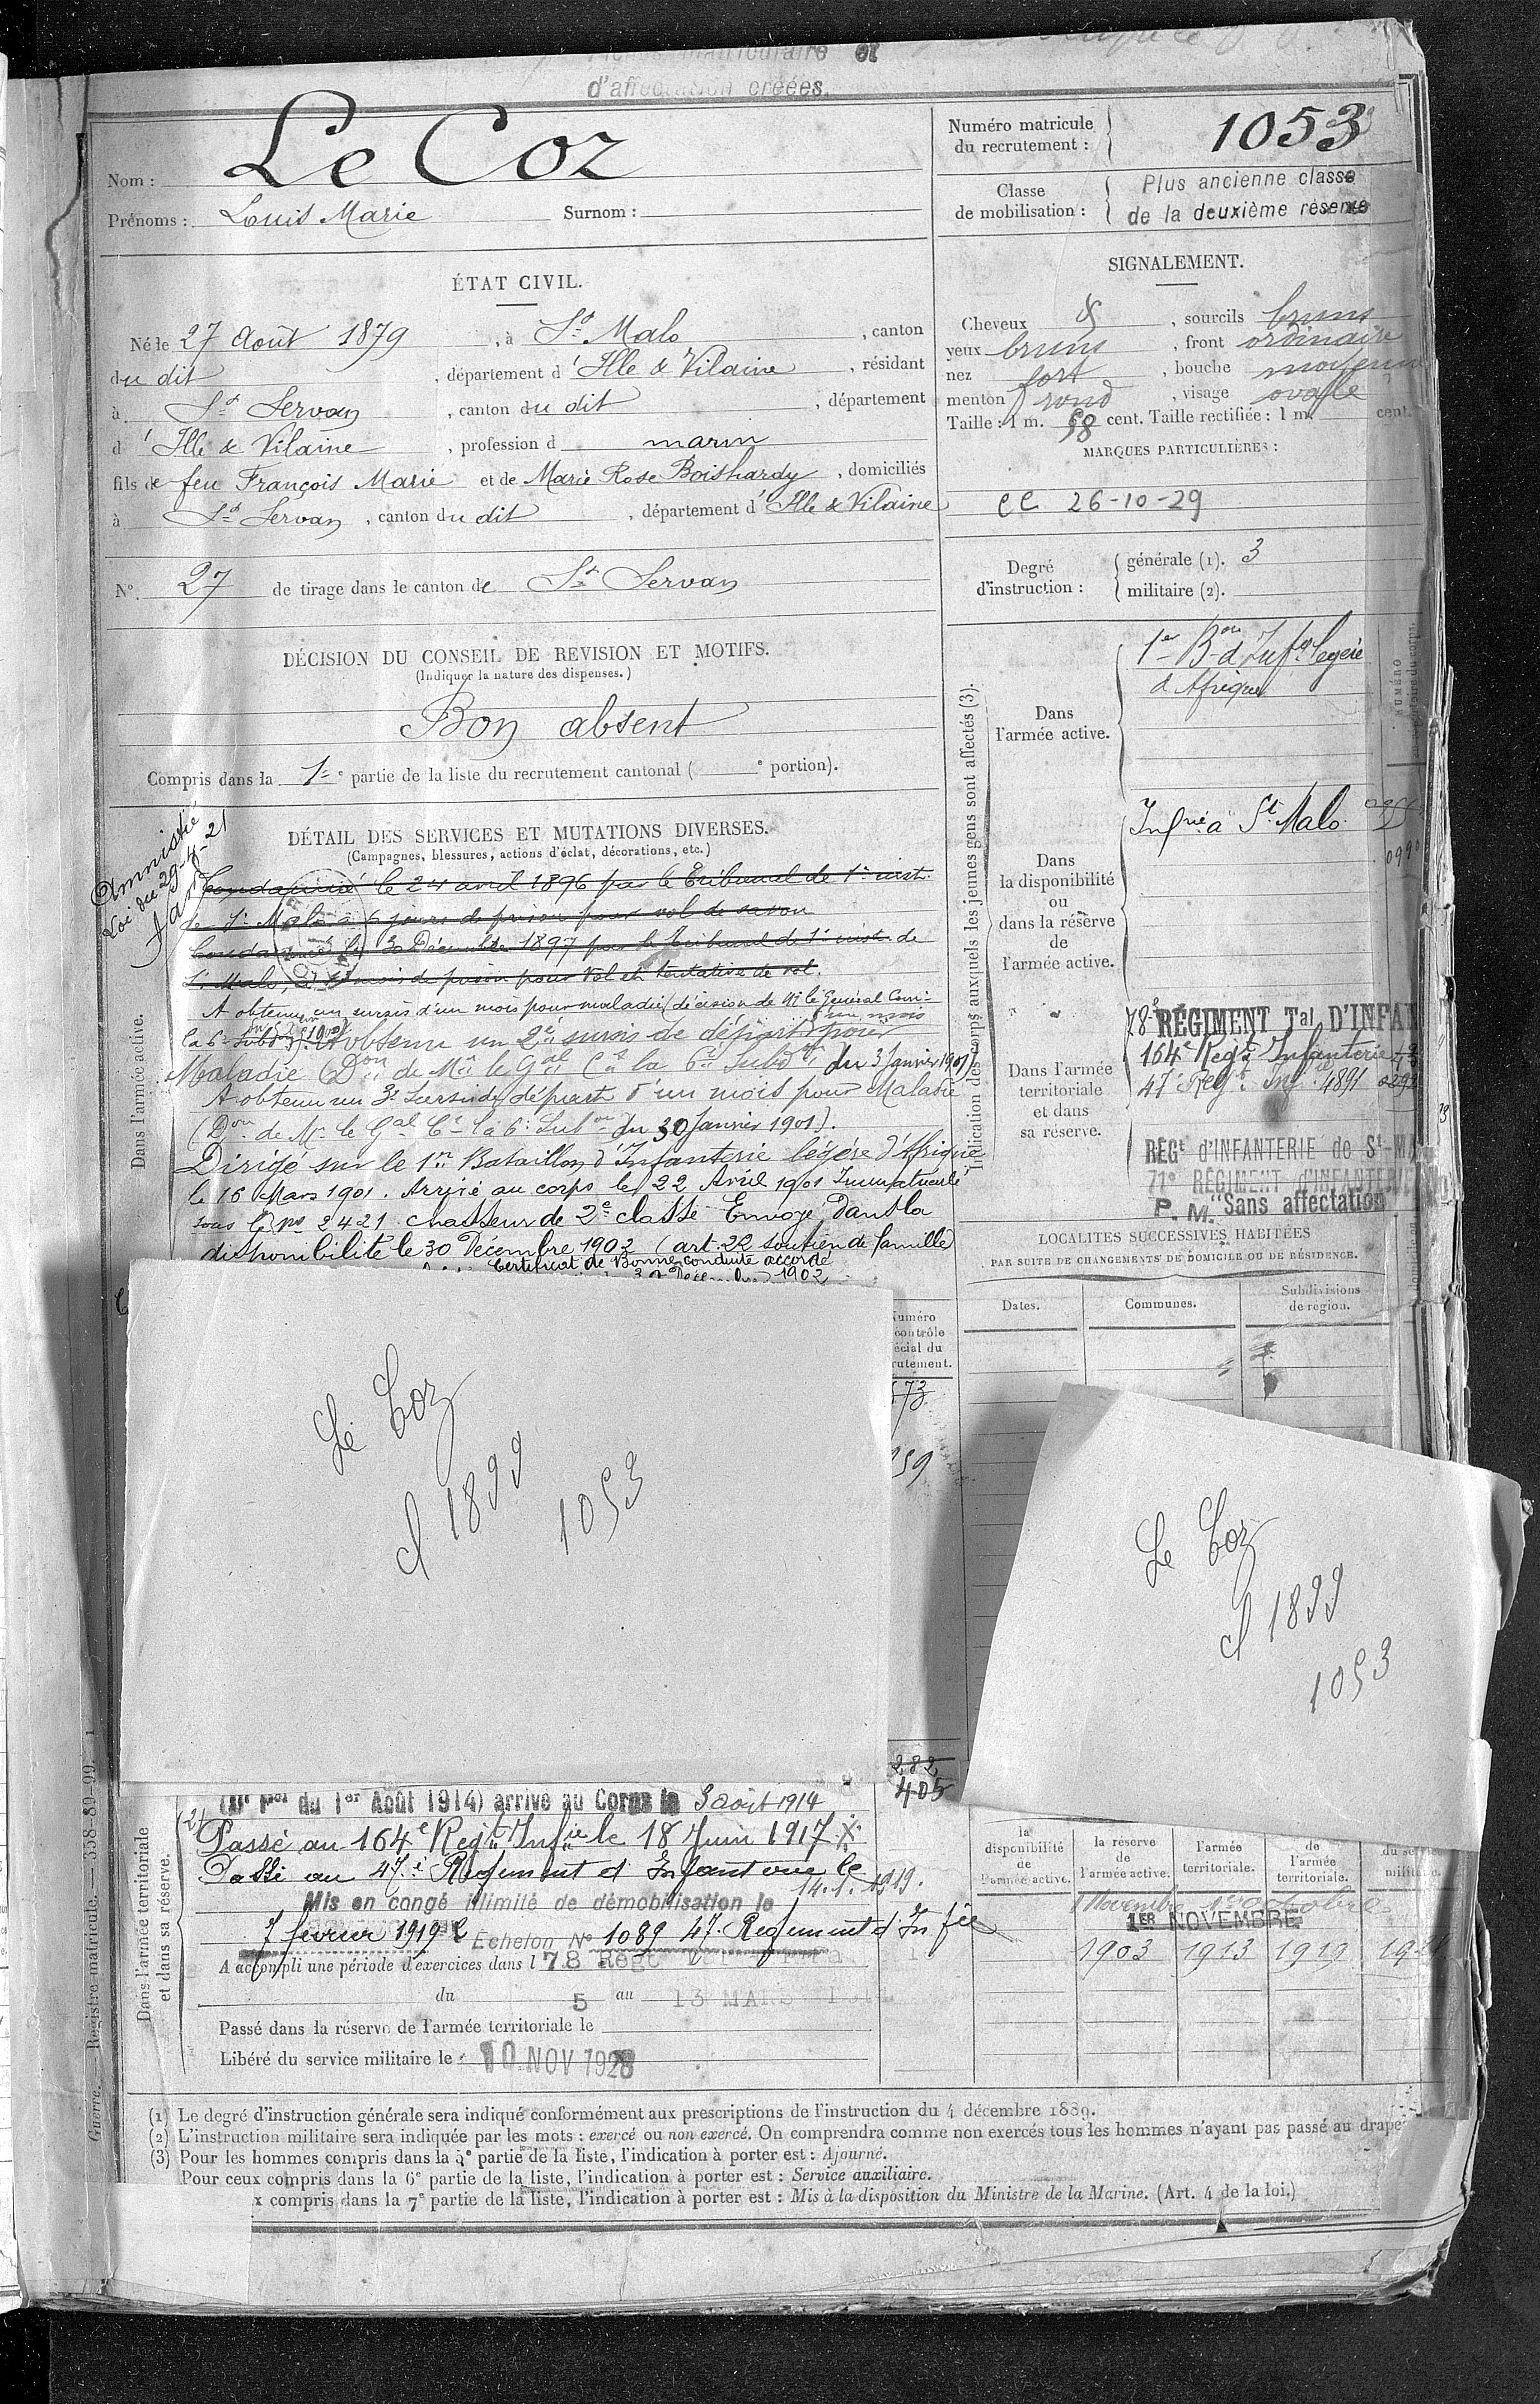 matriculaire et
d'affectation créées.
Nom : Le Coz
Prénoms : Louis Marie Surnom :
Numéro matricule du recrutement : 1053
Classe de mobilisation : Plus ancienne classe
de la deuxième réserve
ÉTAT CIVIL.
Né le 27 Août 1879, à St Malo, canton
du dit, département d'Ille & Vilaine, résidant
à St Servan, canton du dit, département
d'Ille & Vilaine, profession d marin
fils de feu François Marie et de Marie Rose Boishardy, domiciliés
à St Servan, canton du dit, département d'Ille & Vilaine
SIGNALEMENT.
Cheveux &, sourcils bruns
yeux bruns, front ordinaire
nez fort, bouche moyenne
menton rond, visage ovale
Taille : 1 m. 58 cent. Taille rectifiée : 1 m. cent.
MARQUES PARTICULIÈRES :
CC 26-10-29
No 27 de tirage dans le canton de St Servan
Degré d'instruction : générale (1). 3
militaire (2).
DÉCISION DU CONSEIL DE REVISION ET MOTIFS.
(Indiquer la nature des dispenses.)
Bon absent
Compris dans la 1re partie de la liste du recrutement cantonal ( e portion).
DÉTAIL DES SERVICES ET MUTATIONS DIVERSES.
(Campagnes, blessures, actions d'éclat, décorations, etc.)
Amnistié
Loi du 29-4-21
Dans l'armée active.
Condamné le 24 avril 1896 par le Tribunal de 1re inst.
de St Malo à 6 jours de prison pour vol de savon
Condamné le 30 Décembre 1897 par le Tribunal de 1re inst. de
St Malo, à mois de prison pour Vol et tentative de vol.
A obtenu un sursis d'un mois pour maladie (décision de Mr le Général Com
la 6e Subdon A obtenu un 2e sursis de départ d'un mois pour
Maladie (Don de Mr le Gal Ct la 6e Subdon du 3 Janvier 1901)
A obtenu un 3e Sursis de départ d'un mois pour Maladie
(Don de Mr le Gal Ct la 6e Subon du 30 Janvier 1901).
Dirigé sur le 1er Bataillon d'Infanterie légère d'Afrique
le 16 Mars 1901. Arrivé au corps le 22 Avril 1901 Immatriculé
sous le no 2421 chasseur de 2e classe Envoyé dans la
disponibilité le 30 Décembre 1902 (art. 22 soutien de famille)
Certificat de Bonne conduite accordé
30 Décembre 1902
Indication des corps auxquels les jeunes gens sont affectés (3).
Dans l'armée active.
1er Bon d'Infie légère
d'Afrique
Dans la disponibilité ou dans la réserve de l'armée active.
Infrie à St Malo
0990
NUMÉRO
Dans l'armée territoriale et dans sa réserve.
78e RÉGIMENT Tal D'INFAN
164e Regt Infanterie
47e Regt Infie 4891
REGt d'INFANTERIE de St-MA
71e RÉGIMENT d'INFANTERIE
P. M. "Sans affectation
LOCALITÉS SUCCESSIVES HABITÉES
PAR SUITE DE CHANGEMENTS DE DOMICILE OU DE RÉSIDENCE.
Dates. Communes. Subdivisions de région.
Numéro
contrôle
écial du
rutement.
73
59
Le Coz
cl 1899
1053
Le Coz
cl 1899
1053
282
405
Dans l'armée territoriale et dans sa réserve.
du 1er Août 1914) arrivé au Corps le 3 août 1914
(2) Passé au 164e Regt Infie le 18 Juin 1917 X
Passé au 47e Regiment d'Infanterie le 14.1.1919.
Mis en congé illimité de démobilisation le
7 février 1919 Echelon No 1089 47. Regiment d'Infie
A accompli une période d'exercices dans l 78 Regt
du 5 au 13 MARS
Passé dans la réserve de l'armée territoriale le
Libéré du service militaire le 10 NOV 1928
la disponibilité de l'armée active.
la réserve de l'armée active.
l'armée territoriale.
de l'armée territoriale.
du service militaire.
1 Novembre 1er octobre
1ER NOVEMBRE
1903 1913 1919 192
Guerre. — Registre matricule. — 358-89-99. 1
(1) Le degré d'instruction générale sera indiqué conformément aux prescriptions de l'instruction du 4 décembre 1889.
(2) L'instruction militaire sera indiquée par les mots : exercé ou non exercé. On comprendra comme non exercés tous les hommes n'ayant pas passé au drape
(3) Pour les hommes compris dans la 5e partie de la liste, l'indication à porter est : Ajourné.
Pour ceux compris dans la 6e partie de la liste, l'indication à porter est : Service auxiliaire.
x compris dans la 7e partie de la liste, l'indication à porter est : Mis à la disposition du Ministre de la Marine. (Art. 4 de la loi.)